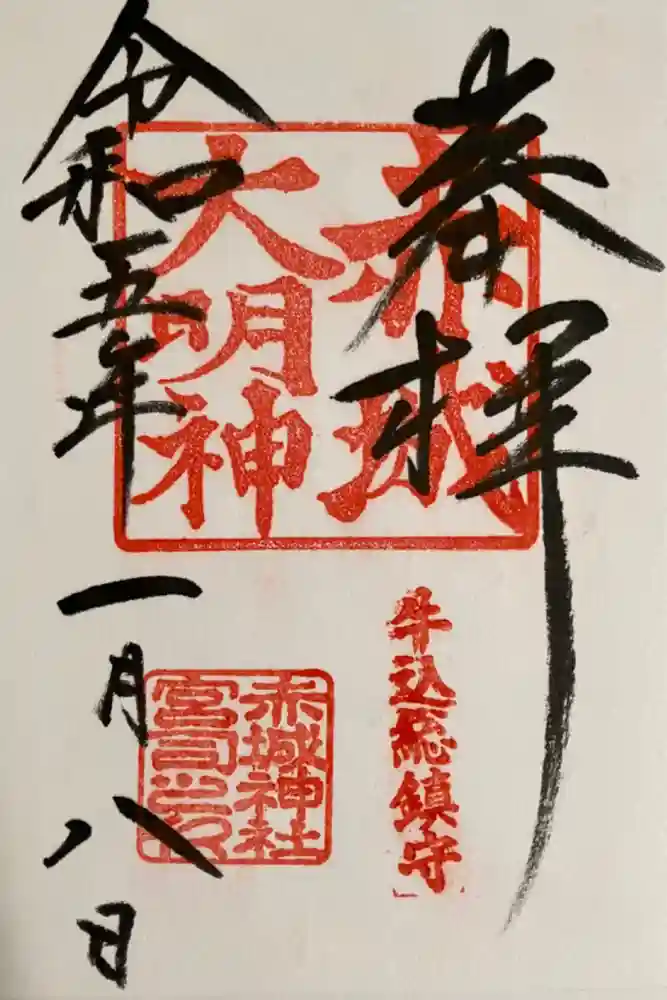 奉拝
赤城
大明神
牛込総鎮守
赤城神社
宮司之印
令和五年
一月八日